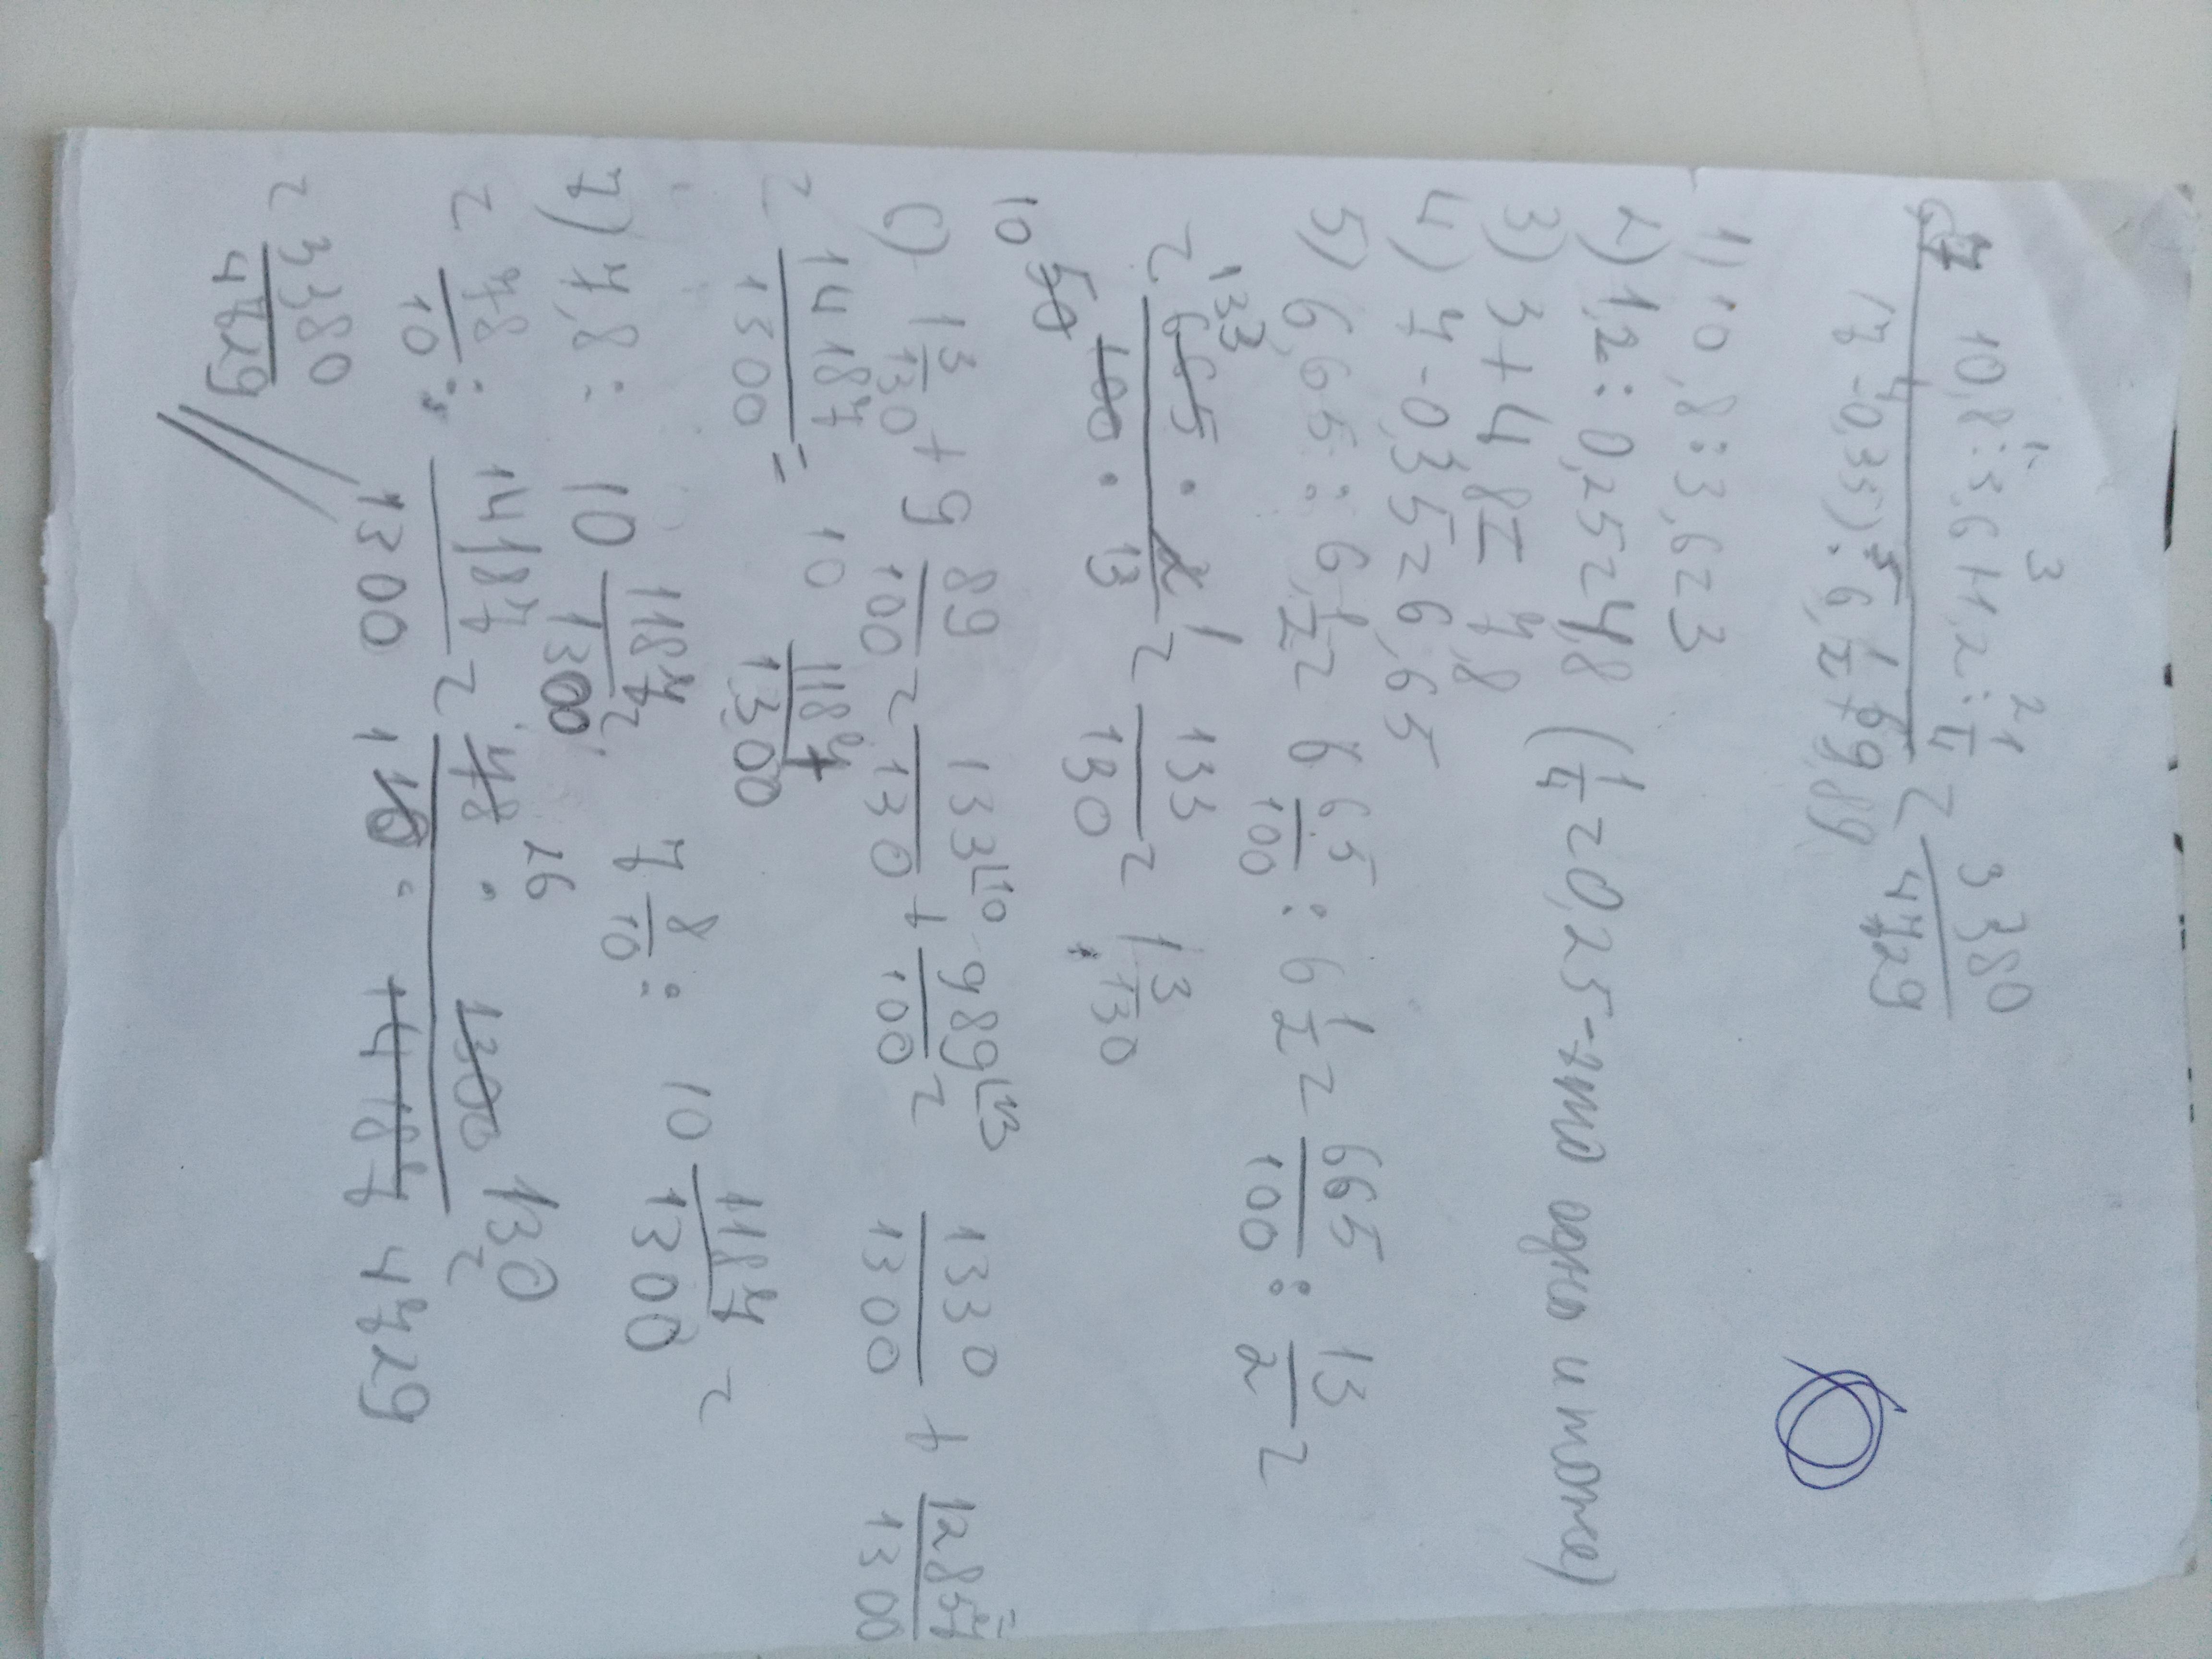 10,8:3,6+1,2:1/4 = 3380/4729
(7-0,35):6 1/2+9,89
1) 10,8:3,6=3
2) 1,2:0,25=4,8 (1/4=0,25-это одно и тоже)
3) 3+4,8= 7,8
4) 7-0,35=6,65
5) 6,65:6 1/2= 6 65/100 : 6 1/2 = 665/100 : 13/2 =
= 665·2/100·13 = 133/130 = 1 3/130
133 1
10 50 13
6) 1 3/130 + 9 89/100 = 133/130 + 989/100 = 1330/1300 + 12857/1300
10 13
= 14187/1300 = 10 1187/1300
7) 7,8: 10 1187/1300 = 7 8/10 : 10 1187/1300 =
= 78/10 : 14187/1300 = 78·1300/10·14187 =
26 130
1 4729
= 3380/4729